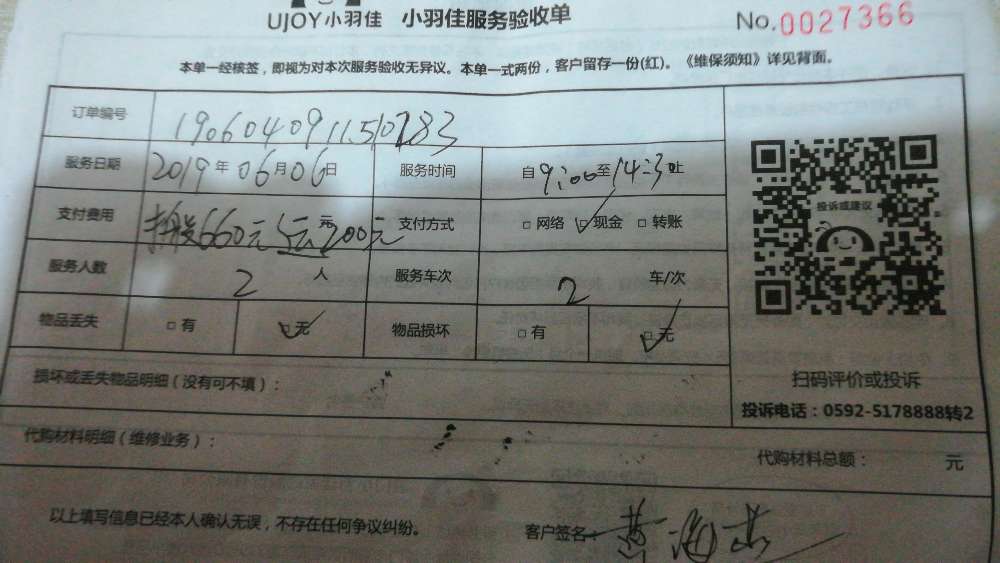 UJOY小羽佳 小羽佳服务验收单
No.0027366
本单一经核签，即视为对本次服务验收无异议。本单一式两份，客户留存一份(红)。《维保须知》详见背面。
订单编号
服务日期 2019年06月06日 服务时间 自9:00至14:30止
投诉或建议
支付费用 660元 200元 支付方式 □网络 □现金 □转账
服务人数 2人 服务车次 2车/次
物品丢失 □有 □无 物品损坏 □有 □无
扫码评价或投诉
损坏或丢失物品明细（没有可不填）：
投诉电话：0592-5178888转2
代购材料明细（维修业务）：
代购材料总额： 元
以上填写信息已经本人确认无误，不存在任何争议纠纷。 客户签名